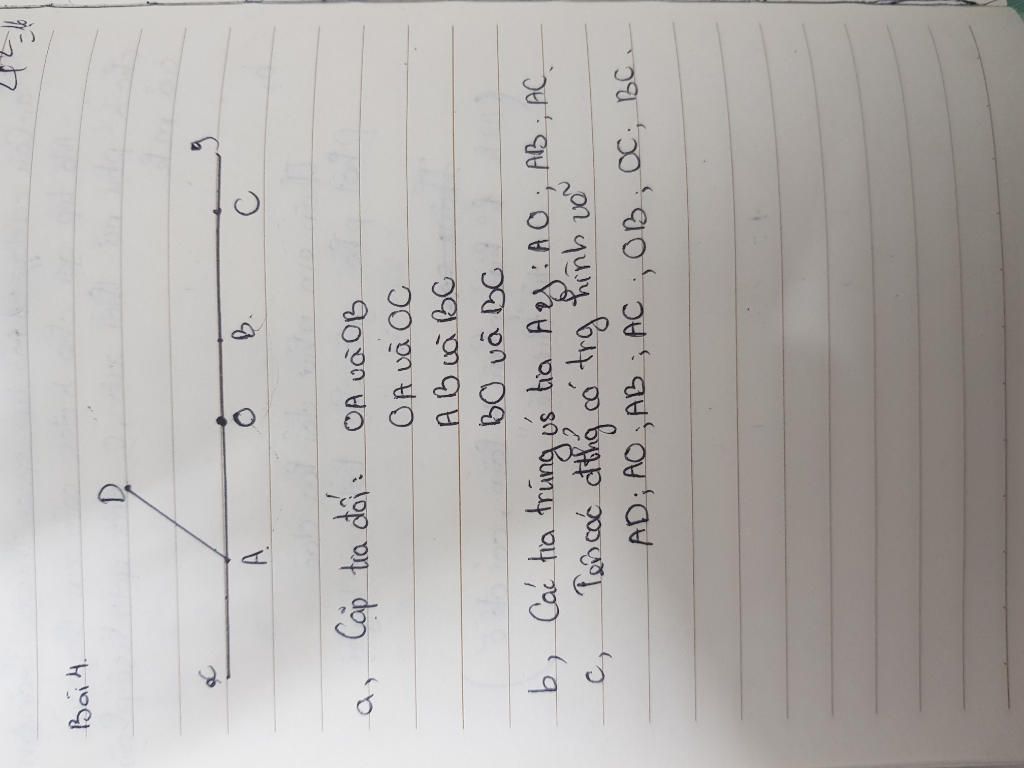 Bài 4.
D
x A O B. C y
a, Cặp tia đối: OA và OB
OA và OC
AB và BC
BO và BC
b, Các tia trùng vs tia Ay: AO; AB; AC.
c, Tên các đthg có trg hình vẽ
AD; AO; AB; AC; OB; OC; BC.